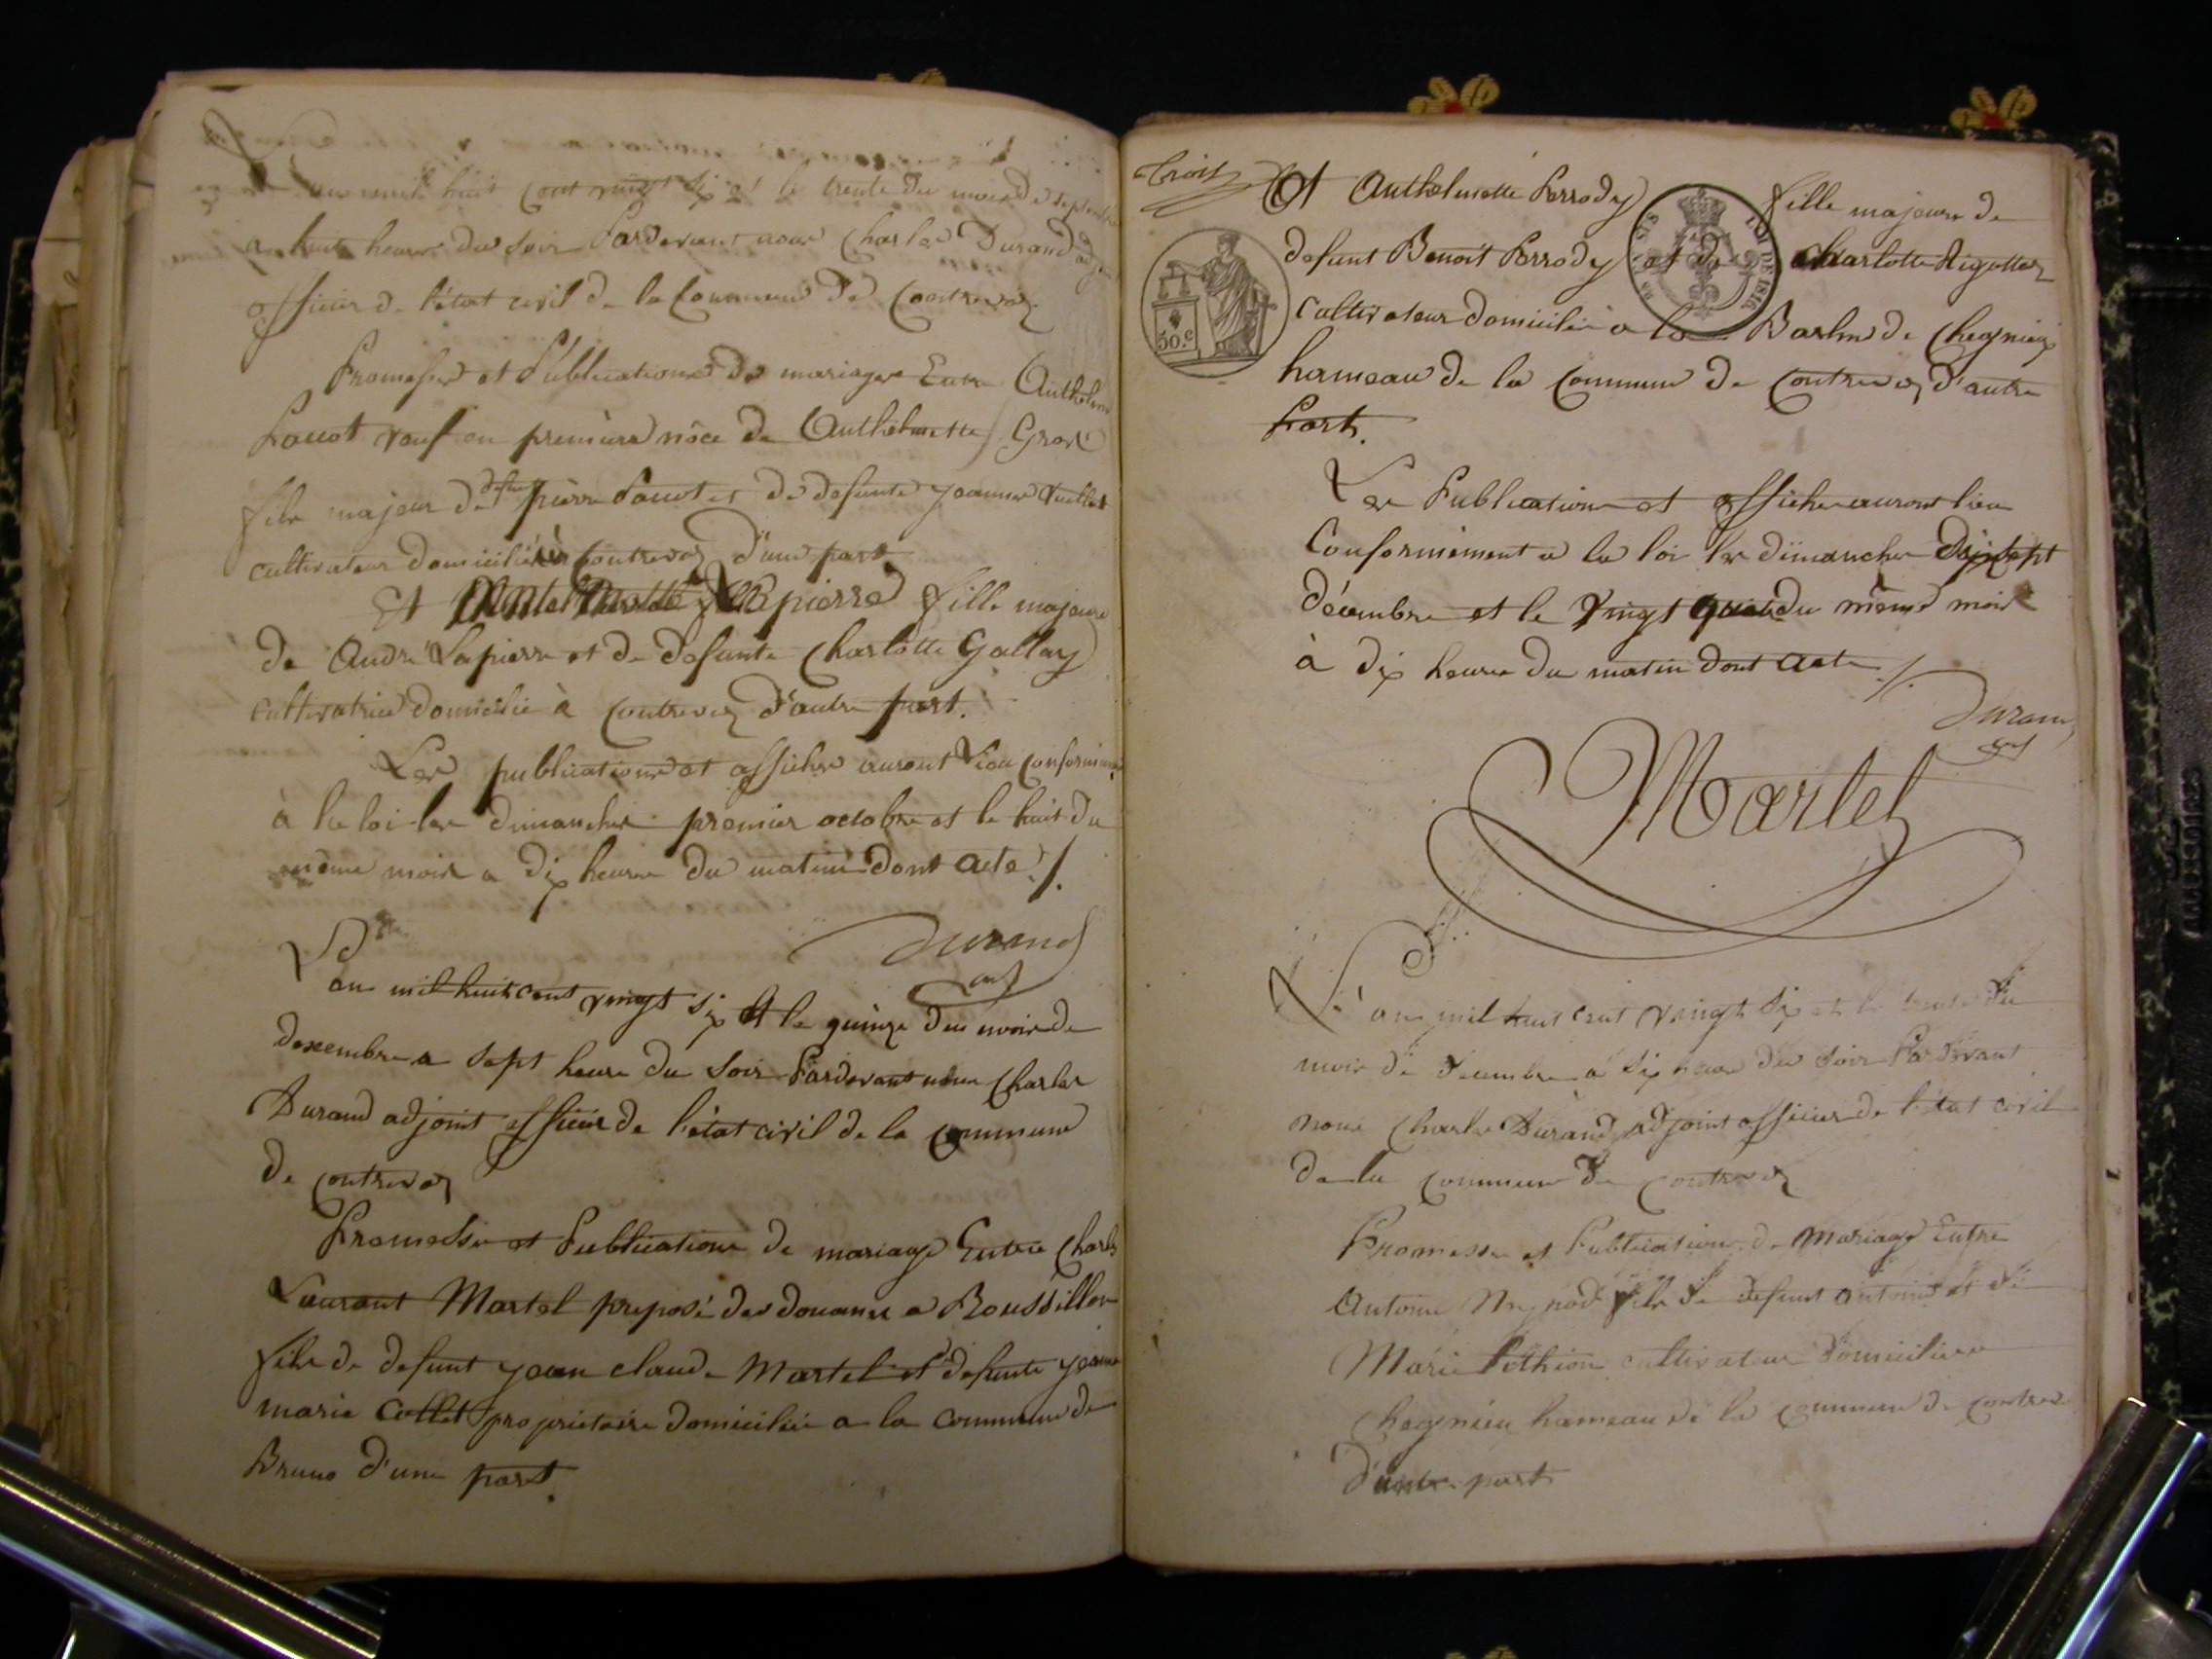 an mil huit cent vingt six et le trente du mois de septembre
a huit heures du soir Pardevant nous Charles Durand adjoint
officier de l'état civil de la Commune de Contrevoz
Promesses et Publications de mariage Entre Anthelme
Pauot veuf en première nôce de Anthelmette Gros
fils majeur de deft pierre Pauot et de defunte jeanne Vuillet
cultivateur domicilié à Contrevoz d'une part
Et Lapierre fille majeure
de André Lapierre et de defunte Charlotte Gallay
cultivatrice domicilié à Contrevoz d'autre part.
Les publications et affiches auront lieu conformément
à la loi les dimanches premier octobre et le huit du
même mois a dix heures du matin dont acte ./.
Durand
adj
L'an mil huit cent vingt six Et le quinze du mois de
decembre a sept heure du soir Pardevant nous Charles
Durand adjoint officier de l'état civil de la commune
de Contrevoz
Promesse et Publications de mariage Entre Charles
Laurant Martel preposé des douanes a Roussillon
fils de defunt jean claude Martel et defunte jeanne
marie Collet propriétaire domicilié a la commune de
Bruno d'une part.
Trois
Et Anthelmette Perrody fille majeure de
defunt Benoit Perrody et de Charlotte Rigottez
50.c
DE 1816
Cultivateur domicilié à la Barbe de Chegnieu
hameau de la Commune de Contrevoz d'autre
Part.
Les Publications et affiches auront lieu
Conformément a la loi les dimanches Dix sept
décembre et le Vingt quatre du même mois
à dix heures du matin dont acte ./.
Durand
adj
Martel
L'an mil huit cent vingt six et le trente du
mois de decembre à six heures du soir Pardevant
nous Charles Durand adjoint officier de l'état civil
de la Commune de Contrevoz
Promesse et Publications de Mariage Entre
Antoine fils de defunt antoine et de
Marie Péthion cultivateur domicilié a
Chegnieu hameau de la Commune de Contrevoz
d'une part